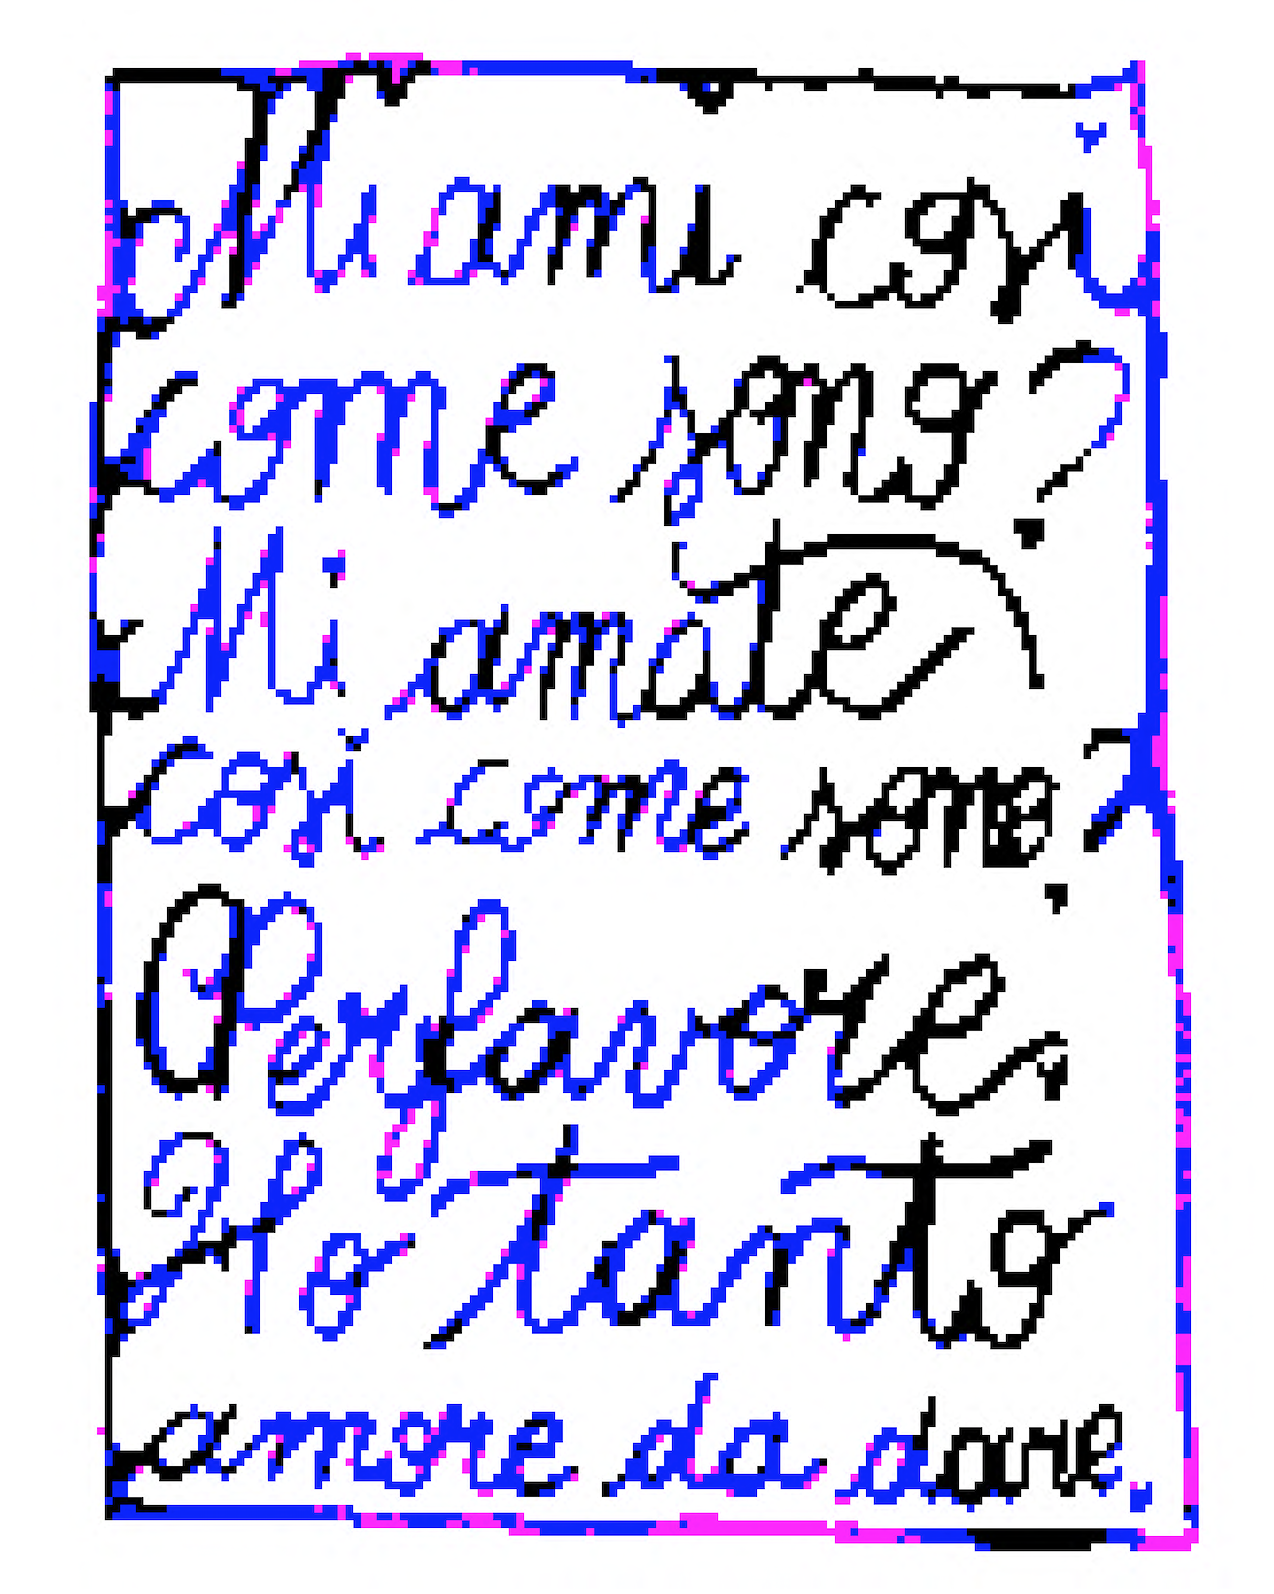 Mi ami così
come sono?
Mi amate
così come sono?
Per favore,
Ho tanto
amore da dare,